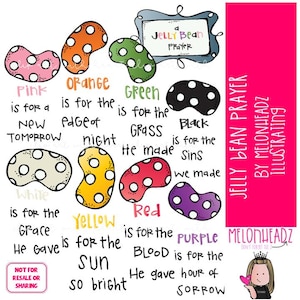 a
JELLY BEAN
PRAYER
Pink
is for a
NEW
TOMORROW
ORANGE
is for the
EDGE OF
night
GREEN
is for the
GRASS
He made
BLACK
is for the
SINS
we made
WHITE
is for the
GRACE
He GAVE
YELLOW
is for the
SUN
so bright
RED
is for the
BLOOD
He gave
PURPLE
is for the
hour of
SORROW
NOT FOR
RESALE OR
SHARING
JELLY BEAN PRAYER
BY MELONHEADZ
ILLUSTRATING
MELONHEADZ